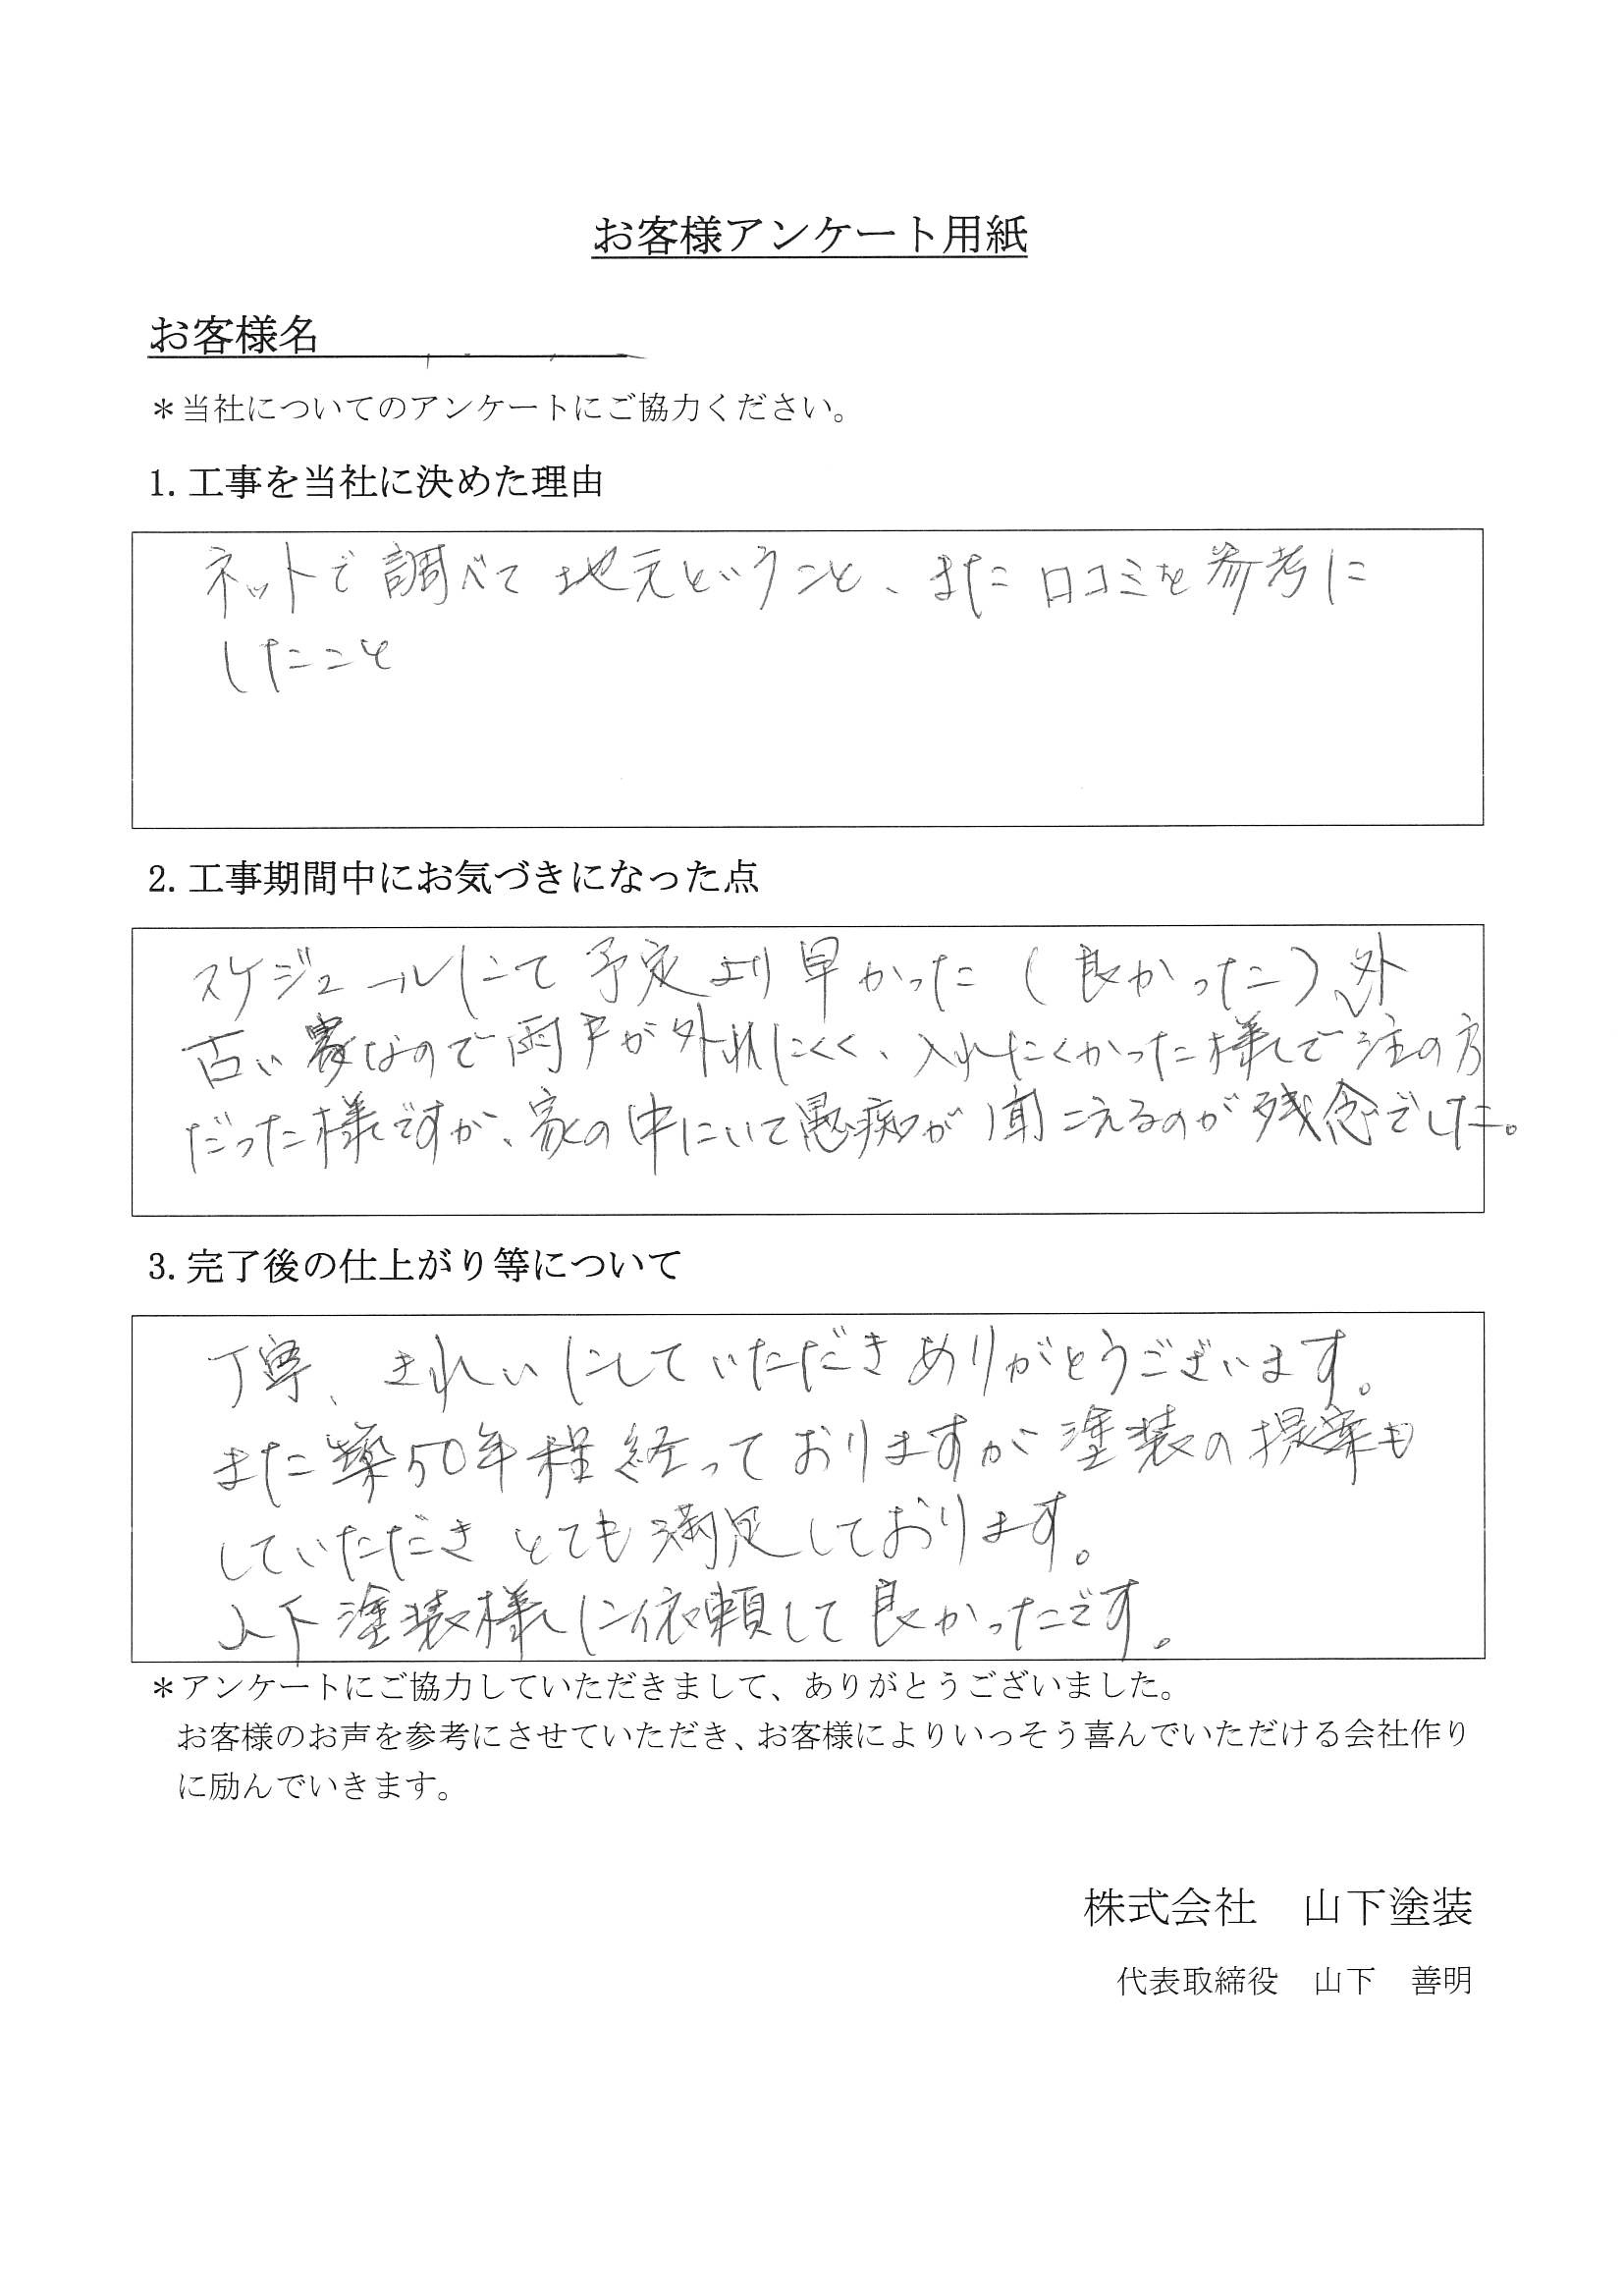 お客様アンケート用紙
お客様名
＊当社についてのアンケートにご協力ください。
1. 工事を当社に決めた理由
ネットで調べて地元ということ、また口コミを参考に
したこと
2. 工事期間中にお気づきになった点
スケジュールにて予定より早かった（良かった）、外
古い家なので雨戸が外れにくく、入れにくかった様で注の方
だった様ですが、家の中にいて愚痴が聞こえるのが残念でした。
3. 完了後の仕上がり等について
丁寧、きれいにしていただきありがとうございます。
また築50年程経っておりますが塗装の提案も
していただきとても満足しております。
山下塗装様に依頼して良かったです。
＊アンケートにご協力していただきまして、ありがとうございました。
お客様のお声を参考にさせていただき、お客様によりいっそう喜んでいただける会社作り
に励んでいきます。
株式会社　山下塗装
代表取締役　山下　善明